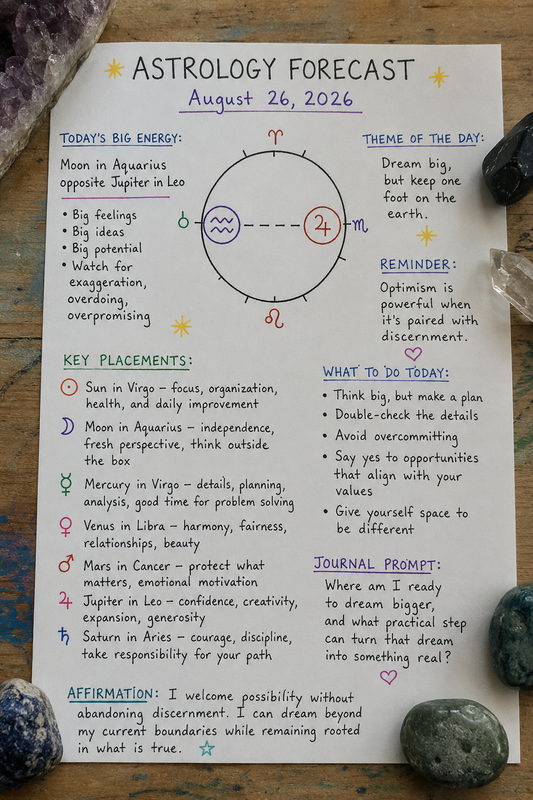 ASTROLOGY FORECAST
August 26, 2026
TODAY'S BIG ENERGY:
Moon in Aquarius
opposite Jupiter in Leo
• Big feelings
• Big ideas
• Big potential
• Watch for
exaggeration,
overdoing,
overpromising
♈
♒
♃
♏
♌
THEME OF THE DAY:
Dream big,
but keep one
foot on the
earth.
REMINDER:
Optimism is
powerful when
it's paired with
discernment.
KEY PLACEMENTS:
☉ Sun in Virgo – focus, organization,
health, and daily improvement
☽ Moon in Aquarius – independence,
fresh perspective, think outside
the box
☿ Mercury in Virgo – details, planning,
analysis, good time for problem solving
♀ Venus in Libra – harmony, fairness,
relationships, beauty
♂ Mars in Cancer – protect what
matters, emotional motivation
♃ Jupiter in Leo – confidence, creativity,
expansion, generosity
♄ Saturn in Aries – courage, discipline,
take responsibility for your path
WHAT TO DO TODAY:
• Think big, but make a plan
• Double-check the details
• Avoid overcommitting
• Say yes to opportunities
that align with your
values
• Give yourself space to
be different
JOURNAL PROMPT:
Where am I ready
to dream bigger,
and what practical step
can turn that dream
into something real?
AFFIRMATION: I welcome possibility without
abandoning discernment. I can dream beyond
my current boundaries while remaining rooted
in what is true.